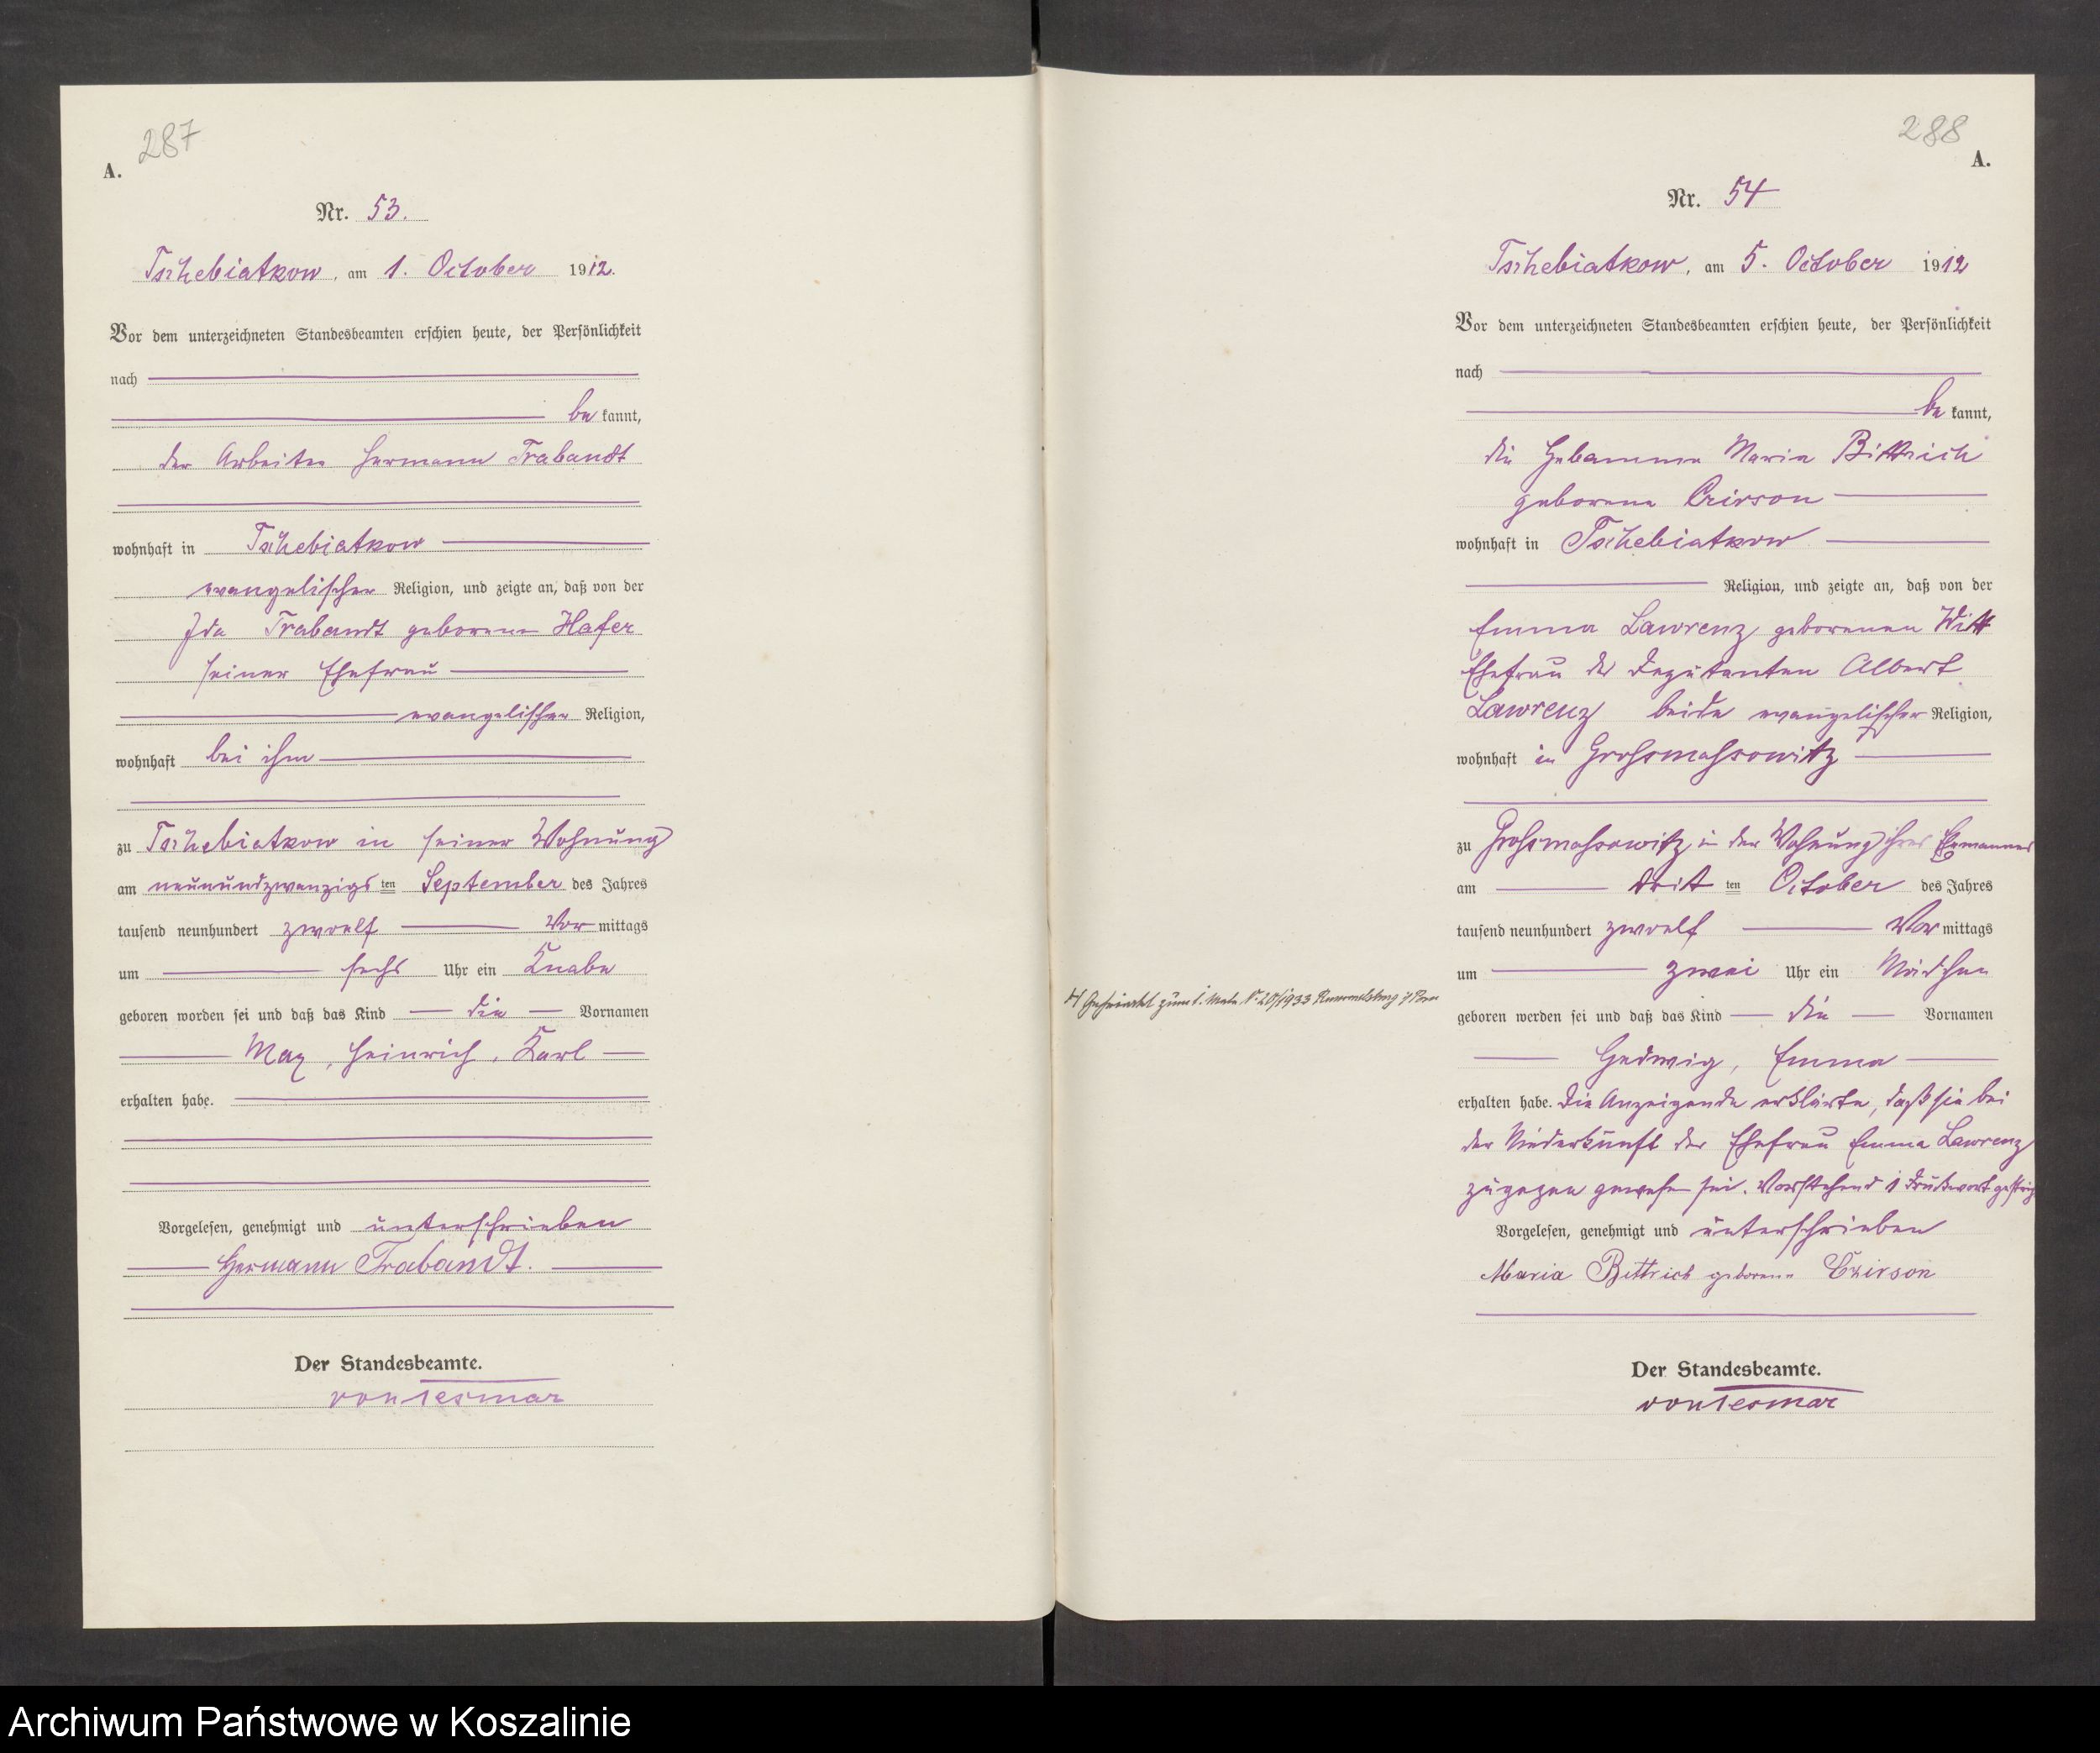 287
A.
Nr. 53.
Tschebiatkow, am 1. October 1912.
Vor dem unterzeichneten Standesbeamten erschien heute, der Persönlichkeit
nach
be kannt,
der Arbeiter Hermann Trabandt
wohnhaft in Tschebiatkow
evangelischer Religion, und zeigte an, daß von der
Ida Trabandt geborenen Hafer
seiner Ehefrau
evangelischer Religion,
wohnhaft bei ihm
zu Tschebiatkow in seiner Wohnung
am neunundzwanzigs ten September des Jahres
tausend neunhundert zwoelf Vor mittags
um sechs Uhr ein Knabe
geboren worden sei und daß das Kind die Vornamen
Max, Heinrich, Karl
erhalten habe.
Vorgelesen, genehmigt und unterschrieben
Hermann Trabandt.
Der Standesbeamte.
von Tesmar
288
A.
Nr. 54
Tschebiatkow, am 5. October 1912
Vor dem unterzeichneten Standesbeamten erschien heute, der Persönlichkeit
nach
be kannt,
die Hebamme Maria Bittrich
geborene Czirson
wohnhaft in Tschebiatkow
Religion, und zeigte an, daß von der
Emma Lawrenz geborenen Witt
Ehefrau des Deputanten Albert
Lawrenz beide evangelischer Religion,
wohnhaft in Grossmassowitz
zu Grossmassowitz in der Wohnung ihres Ehemannes
am drit ten October des Jahres
tausend neunhundert zwoelf Vor mittags
um zwei Uhr ein Mädchen
H Geheiratet zum 1. Male Nr. 20/1933 Rummelsburg i/ Pom
geboren worden sei und daß das Kind die Vornamen
Hedwig, Emma
erhalten habe. Die Anzeigende erklärte, daß sie bei
der Niederkunft der Ehefrau Emma Lawrenz
zugegen gewesen sei. Vorstehend 1 Druckwort gestrich
Vorgelesen, genehmigt und unterschrieben
Maria Bittrich geborene Czirson
Der Standesbeamte.
von Tesmar
Archiwum Państwowe w Koszalinie